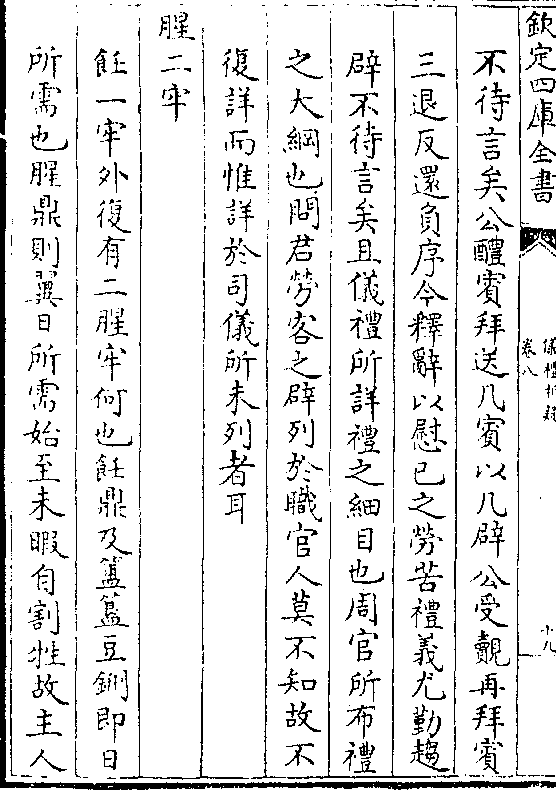 欽定四庫全書
儀禮析疑
卷八
十九
不待言矣公醴賓拜送几賓以几辟公受覿再拜賓
三退反還負序今釋辭以慰已之勞苦禮義尤勤趨
辟不待言矣且儀禮所詳禮之細目也周官所布禮
之大綱也問君勞客之辟列於職官人莫不知故不
復詳而惟詳於司儀所未列者耳
腥二牢
飪一牢外復有二腥牢何也飪鼎及簠簋豆鉶即日
所需也腥鼎則翼日所需始至未暇自割牲故主人